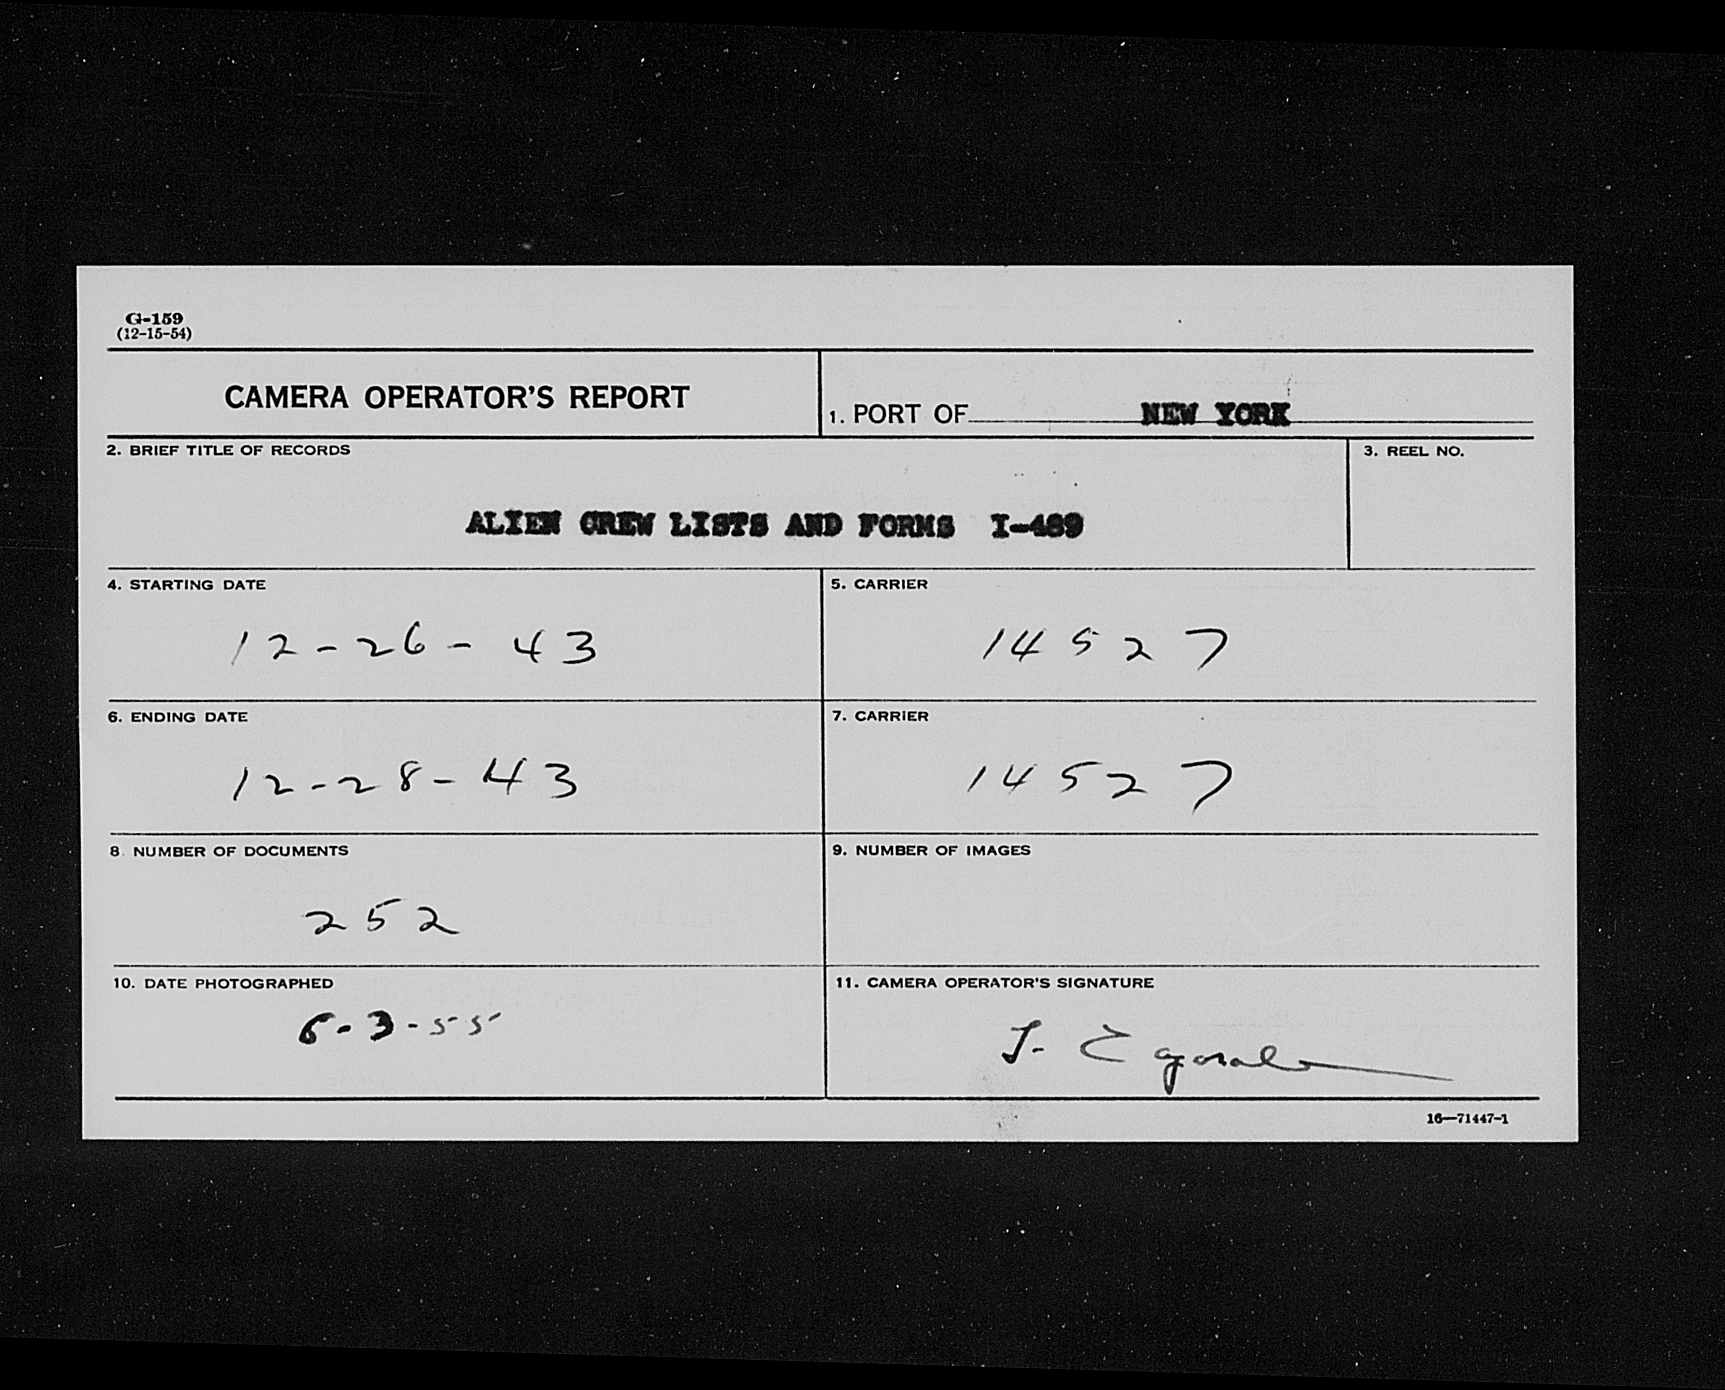 G-159
(12-15-54)
CAMERA OPERATOR'S REPORT
1. PORT OF NEW YORK
2. BRIEF TITLE OF RECORDS
3. REEL NO.
ALIEN CREW LISTS AND FORMS I-489
4. STARTING DATE
5. CARRIER
12-26-43
14527
6. ENDING DATE
7. CARRIER
12-28-43
14527
8. NUMBER OF DOCUMENTS
9. NUMBER OF IMAGES
252
10. DATE PHOTOGRAPHED
11. CAMERA OPERATOR'S SIGNATURE
6-3-55
16—71447-1